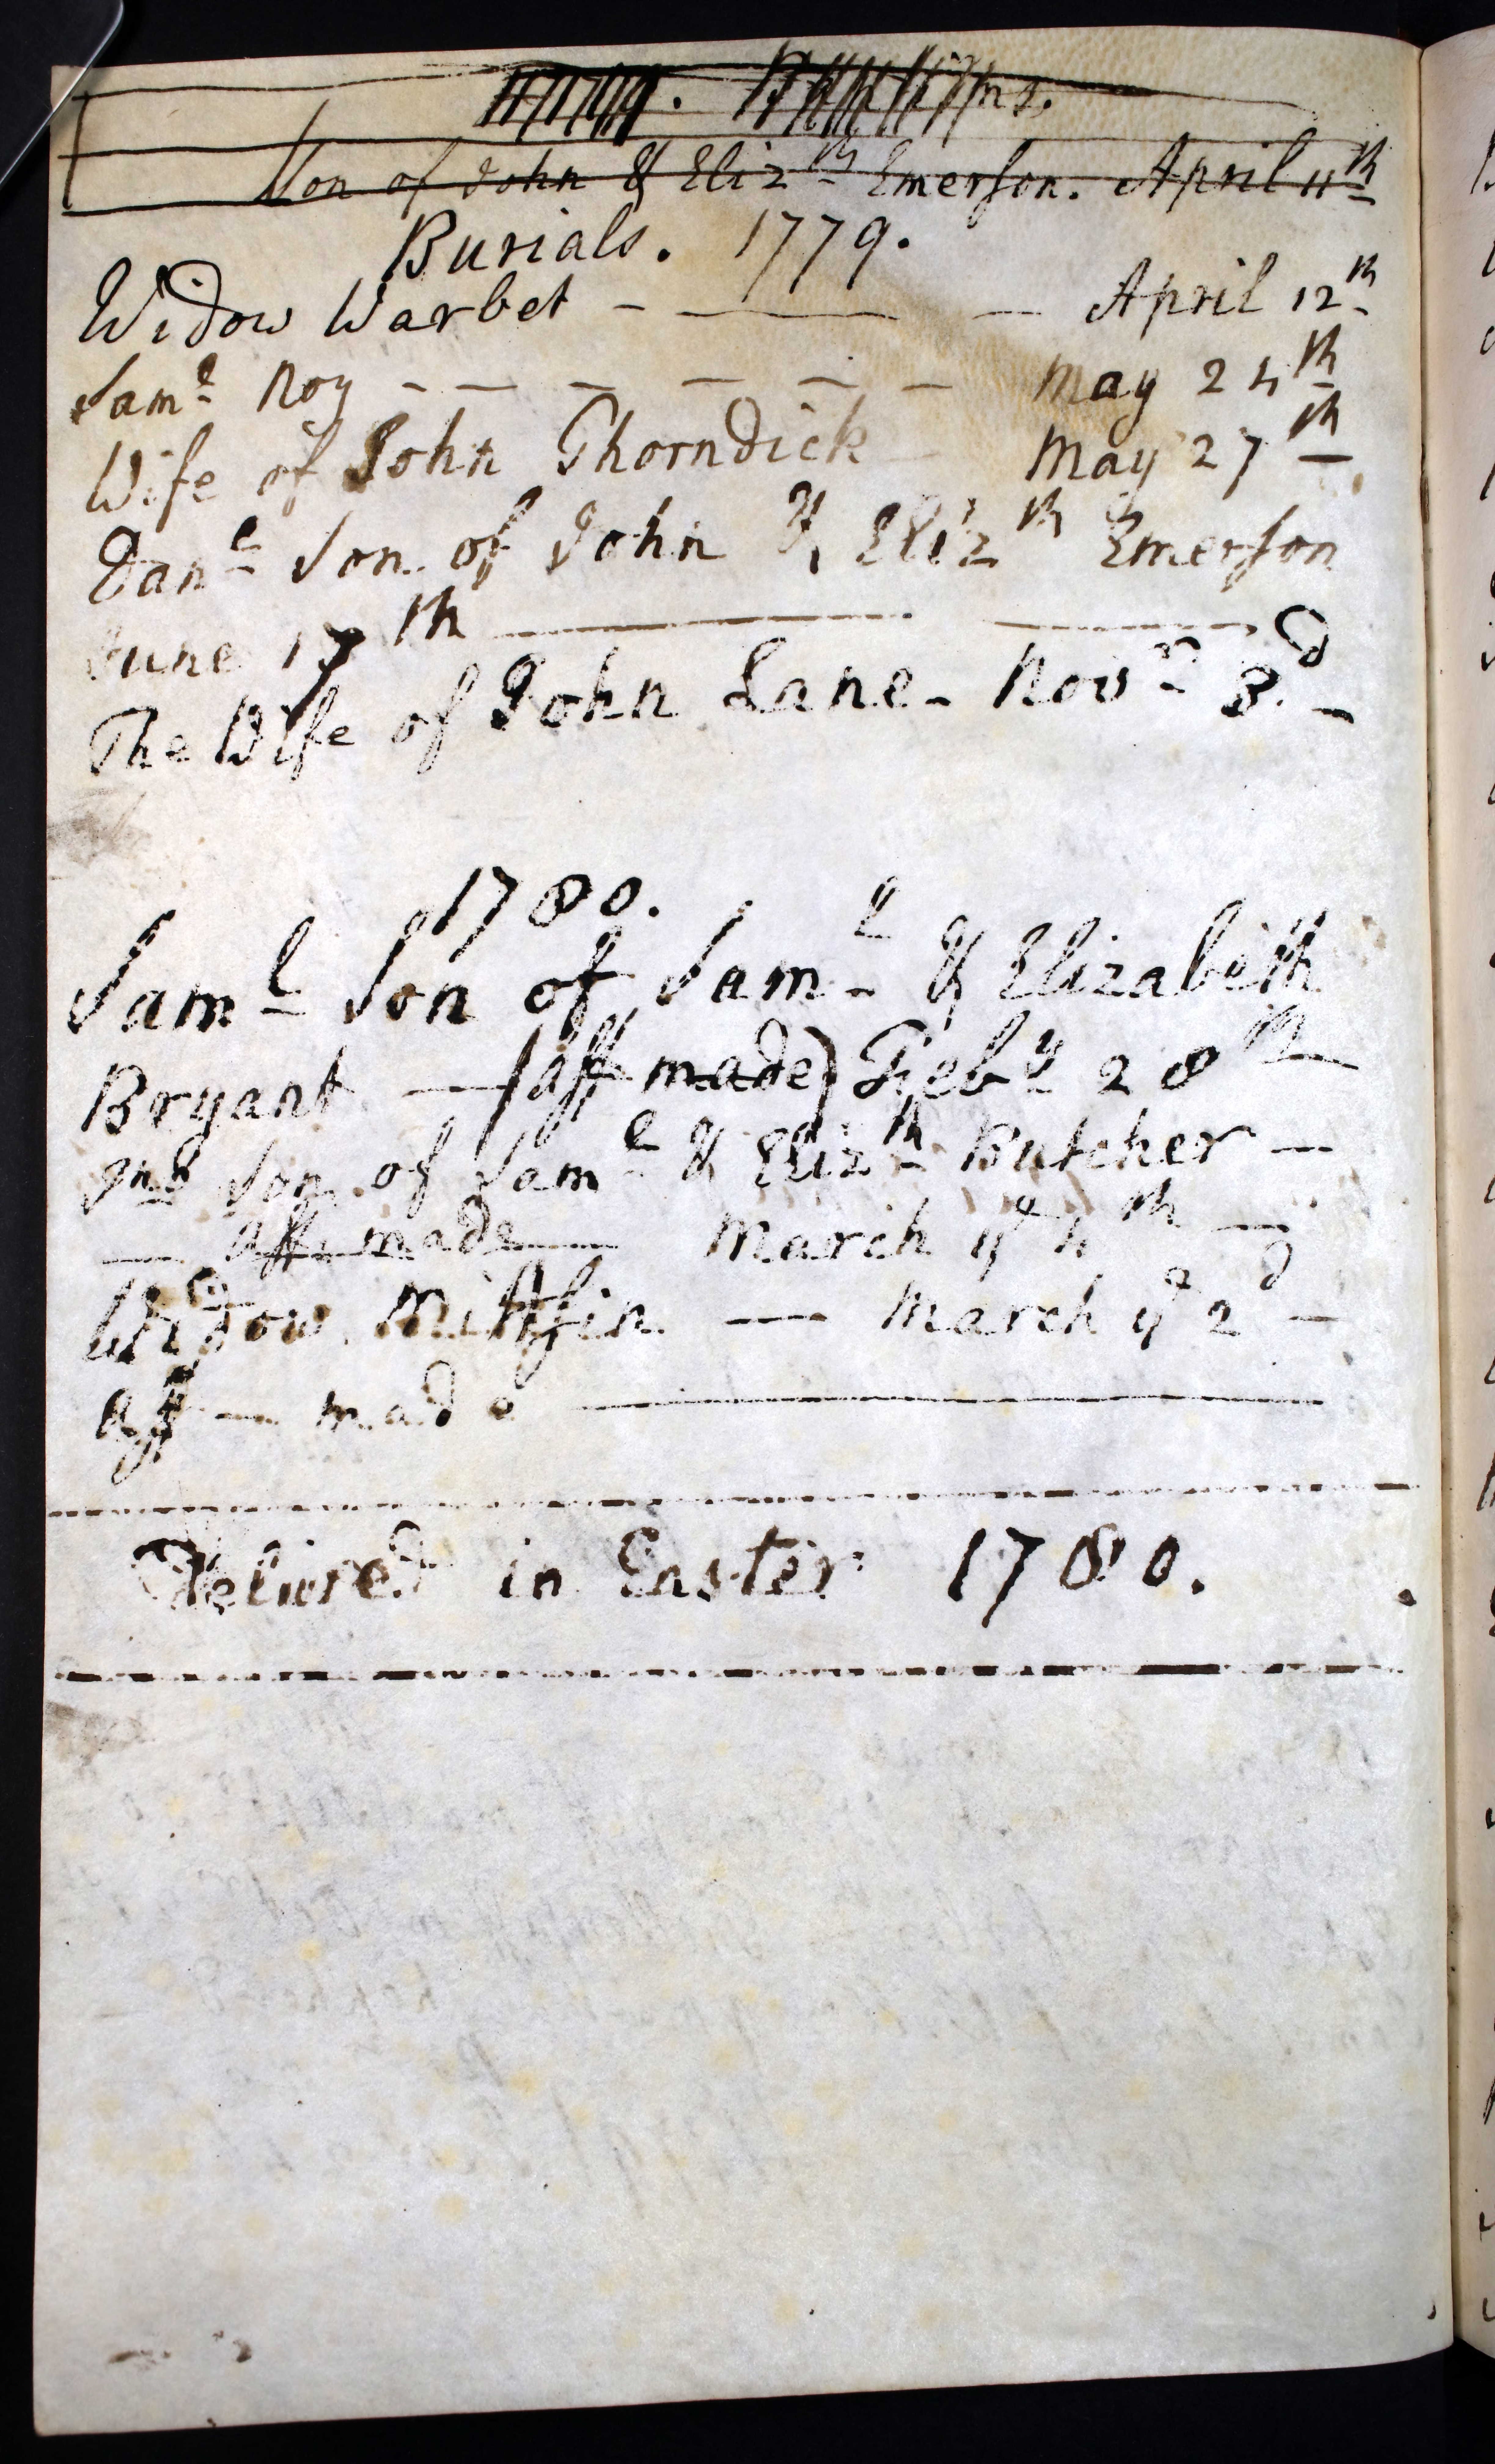 1779. Baptisms.
Son of John & Eliz.th Emerson. April 11th
Burials. 1779.
Widow Warbet - — — April 12th
Saml Roy - — — — — — May 24th
Wife of John Thorndick — May 27th
Danl Son of John & Elizth Emerson
June 17th — —
The Wife of John Lane - Novr 3.d -
1780.
Saml Son of Saml & Elizabeth
Bryant — (aff made) Feby 28th
2nd Son of Saml & Elizth Butcher —
— aff made — March ye 4th —
Widow Mifflin — March ye 2d —
aff — made —
Delivred in Easter 1780.